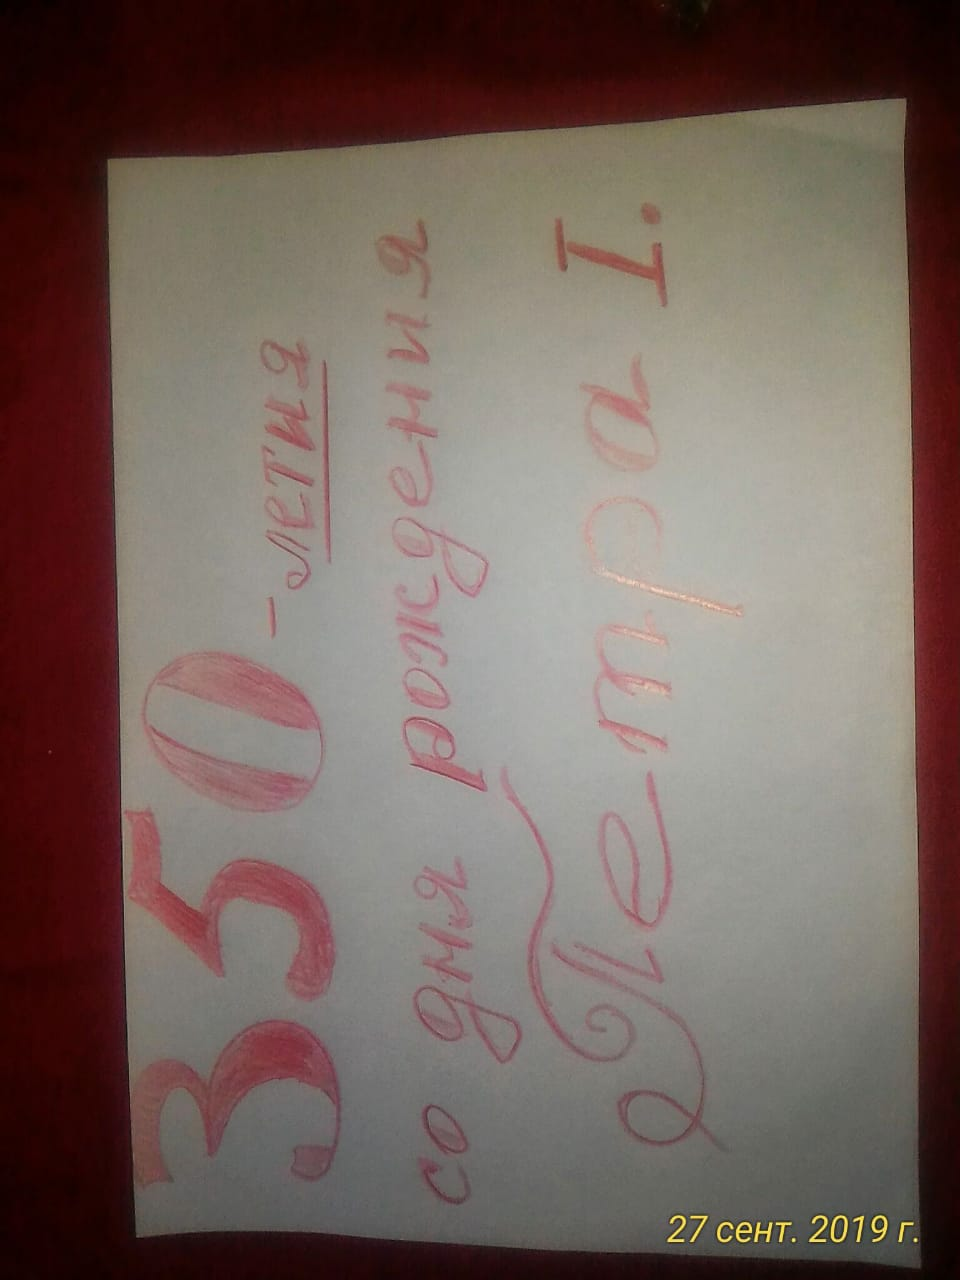 350-летия
со дня рождения
Петра I.
27 сент. 2019 г.